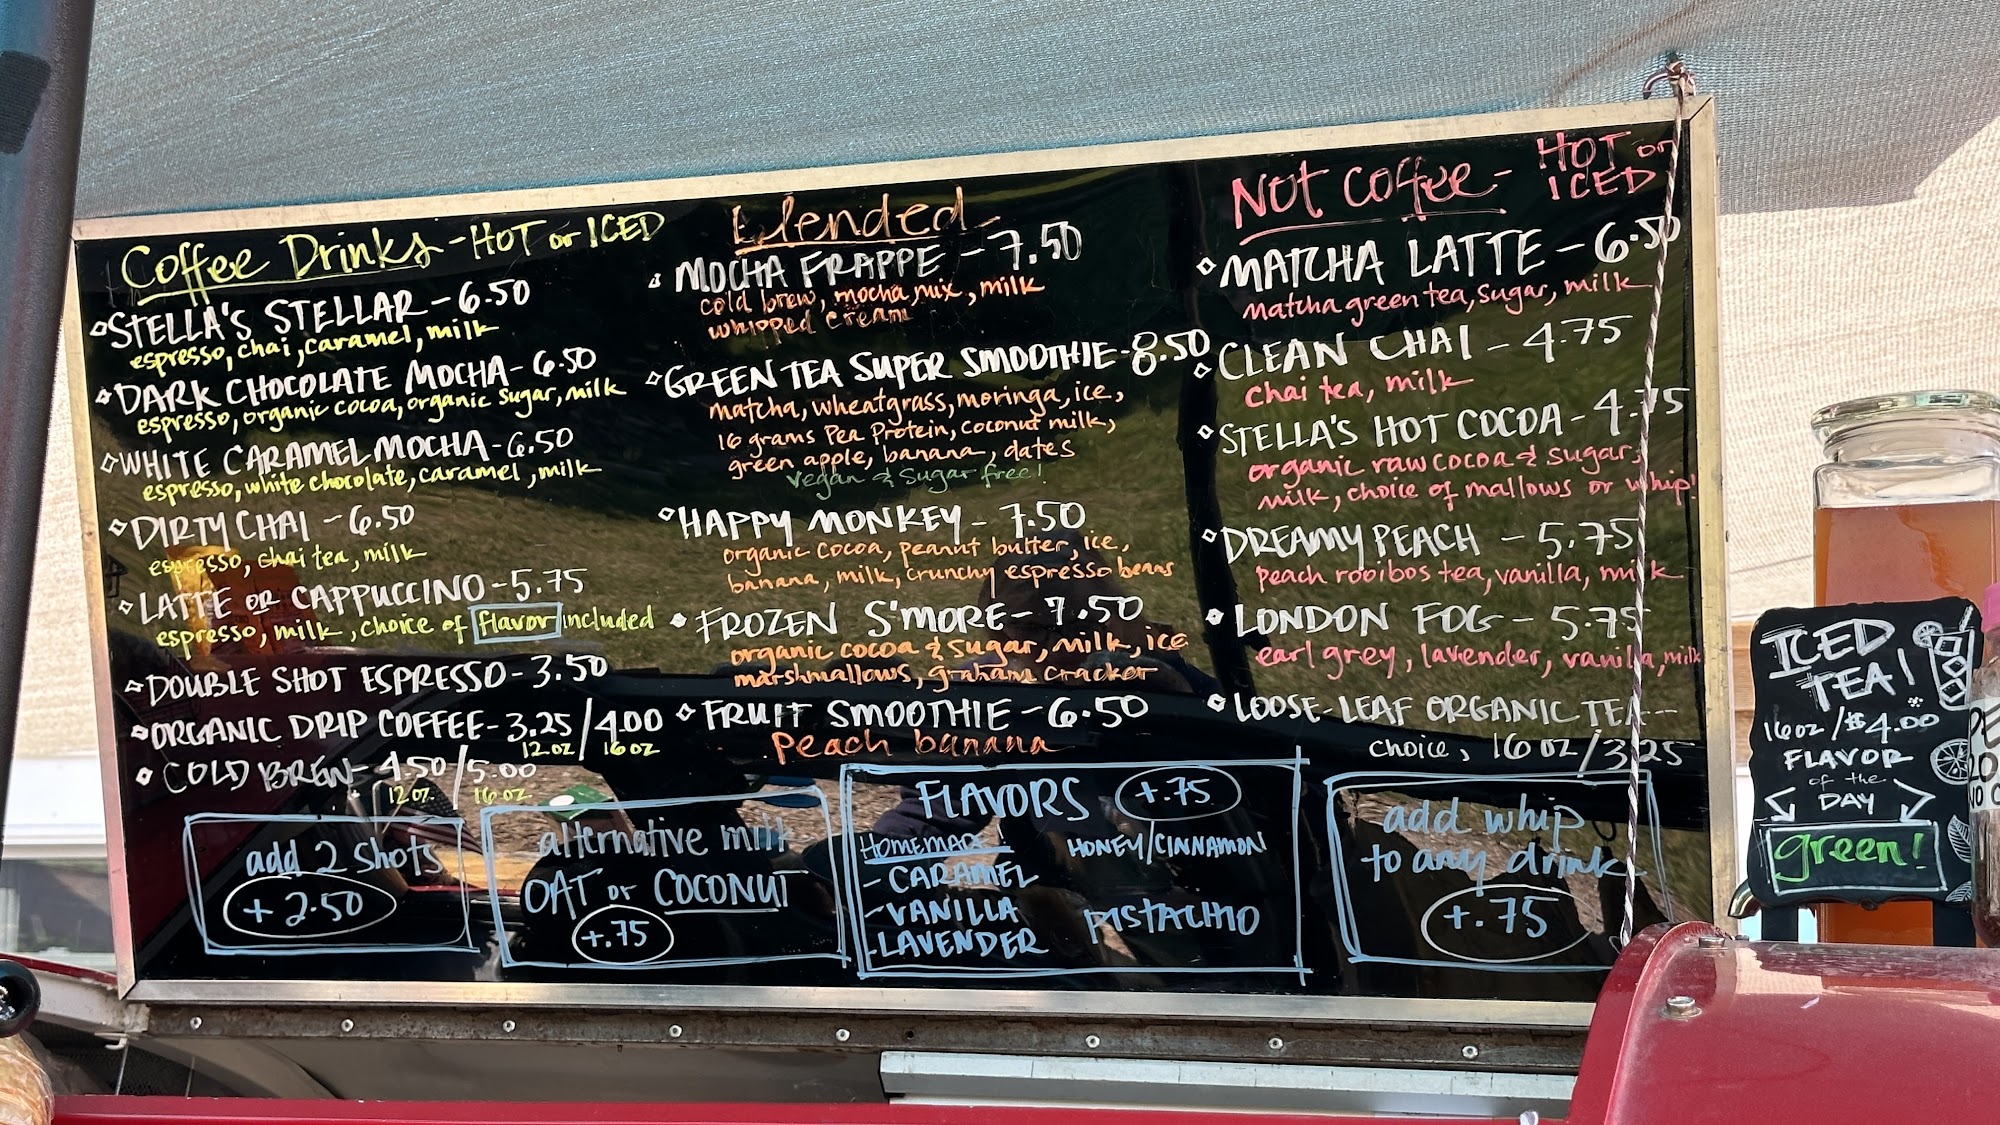 Coffee Drinks - HOT or ICED
STELLA'S STELLAR - 6.50
espresso, chai, caramel, milk
DARK CHOCOLATE MOCHA - 6.50
espresso, organic cocoa, organic sugar, milk
WHITE CARAMEL MOCHA - 6.50
espresso, white chocolate, caramel, milk
DIRTY CHAI - 6.50
espresso, chai tea, milk
LATTE OR CAPPUCCINO - 5.75
espresso, milk, choice of flavor included
DOUBLE SHOT ESPRESSO - 3.50
ORGANIC DRIP COFFEE - 3.25/4.00
12 oz 16 oz
COLD BREW - 4.50/5.00
12 oz. 16 oz
Blended
MOCHA FRAPPE - 7.50
cold brew, mocha mix, milk
whipped cream
GREEN TEA SUPER SMOOTHIE - 8.50
matcha, wheatgrass, moringa, ice,
16 grams Pea Protein, coconut milk,
green apple, banana, dates
vegan & Sugar free!
HAPPY MONKEY - 7.50
organic cocoa, peanut butter, ice,
banana, milk, crunchy espresso beans
FROZEN S'MORE - 7.50
organic cocoa & sugar, milk, ice
marshmallows, graham cracker
FRUIT SMOOTHIE - 6.50
Peach banana
NOT Coffee - HOT or
ICED
MATCHA LATTE - 6.50
matcha green tea, sugar, milk
CLEAN CHAI - 4.75
chai tea, milk
STELLA'S HOT COCOA - 4.75
organic raw cocoa & sugar,
milk, choice of mallows or whip!
DREAMY PEACH - 5.75
peach rooibos tea, vanilla, milk
LONDON FOG - 5.75
earl grey, lavender, vanilla, milk
LOOSE-LEAF ORGANIC TEA---
choice, 16 oz/3.25
add 2 shots
+ 2.50
alternative milk
OAT or COCONUT
+.75
FLAVORS +.75
HOMEMADE
- CARAMEL
- VANILLA
- LAVENDER
HONEY/CINNAMON
PISTACHIO
add whip
to any drink
+.75
ICED
TEA!
16oz/$4.00
FLAVOR
of the
DAY
green!